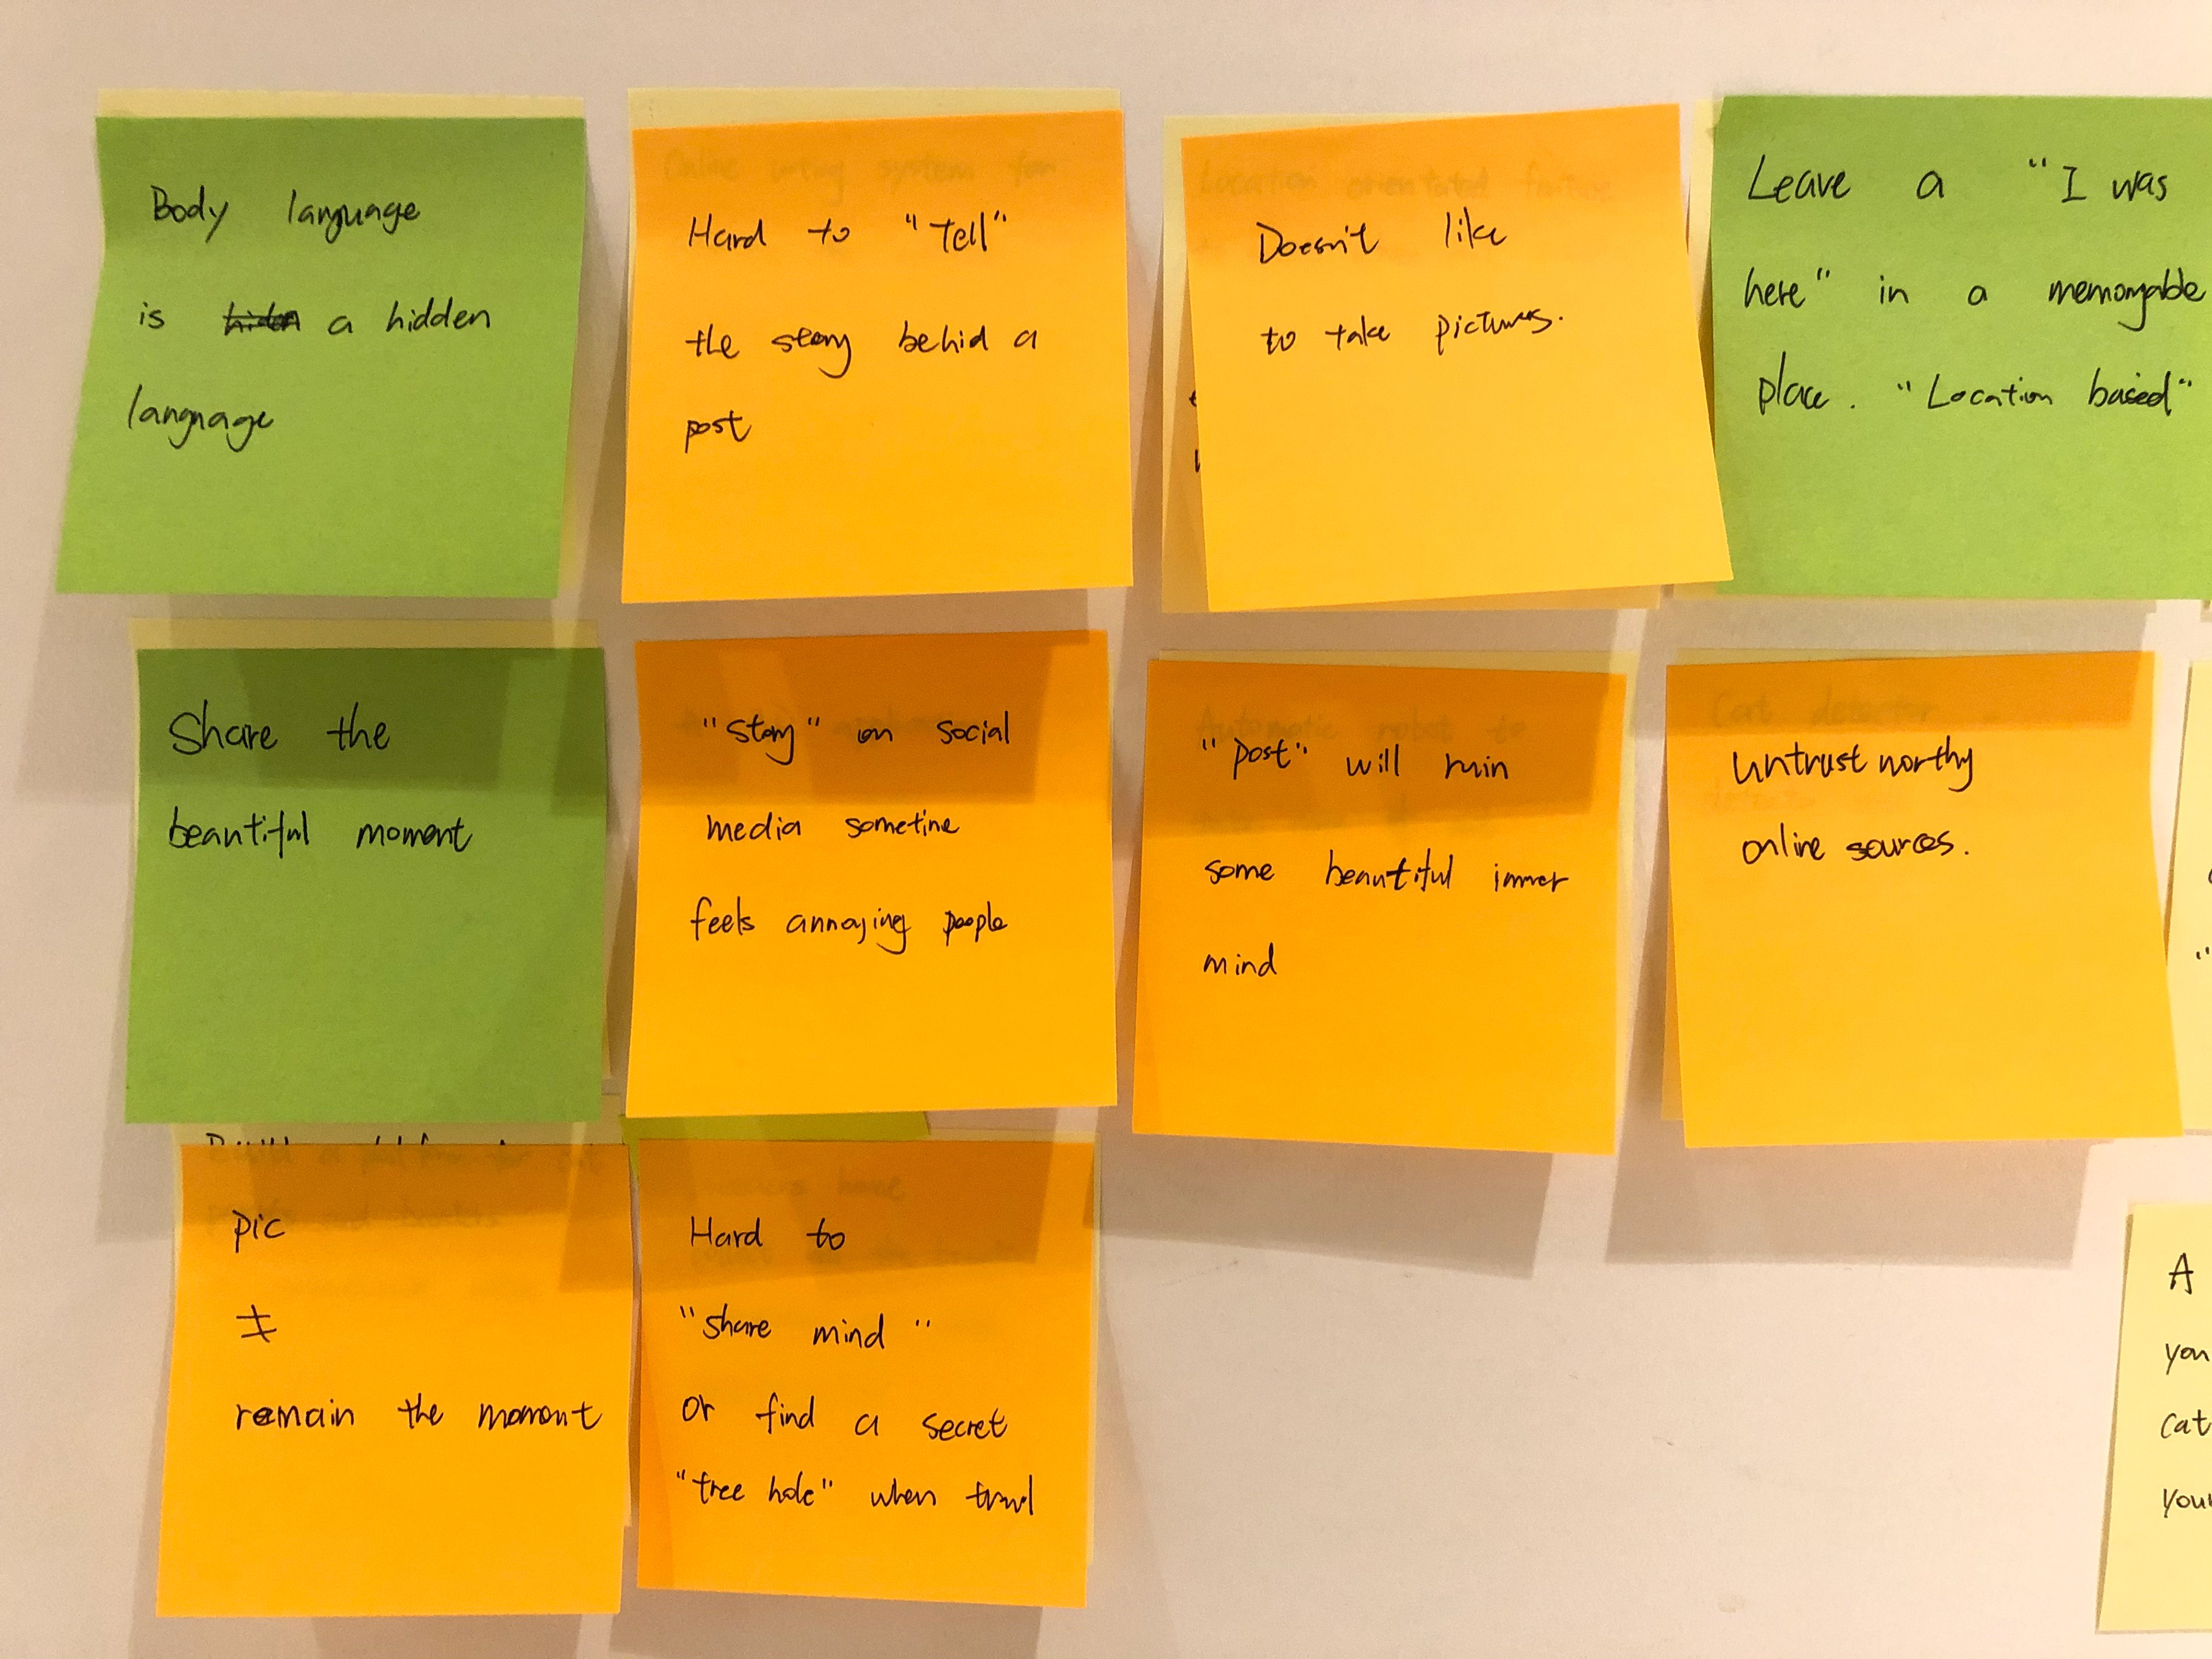 Body language
is a hidden
language
Hard to "tell"
the story behid a
post
Doesn't like
to take pictures.
Leave a "I was
here" in a memorable
place. "Location based"
Share the
beautiful moment
"story" on social
media sometime
feels annoying people
"post" will ruin
some beautiful inner
mind
Untrustworthy
online sources.
pic
≠
remain the moment
Hard to
"share mind"
or find a secret
"tree hole" when travel
Online system for
Location orientated
Automatic robot to
Cat detector
A
you
cat
your